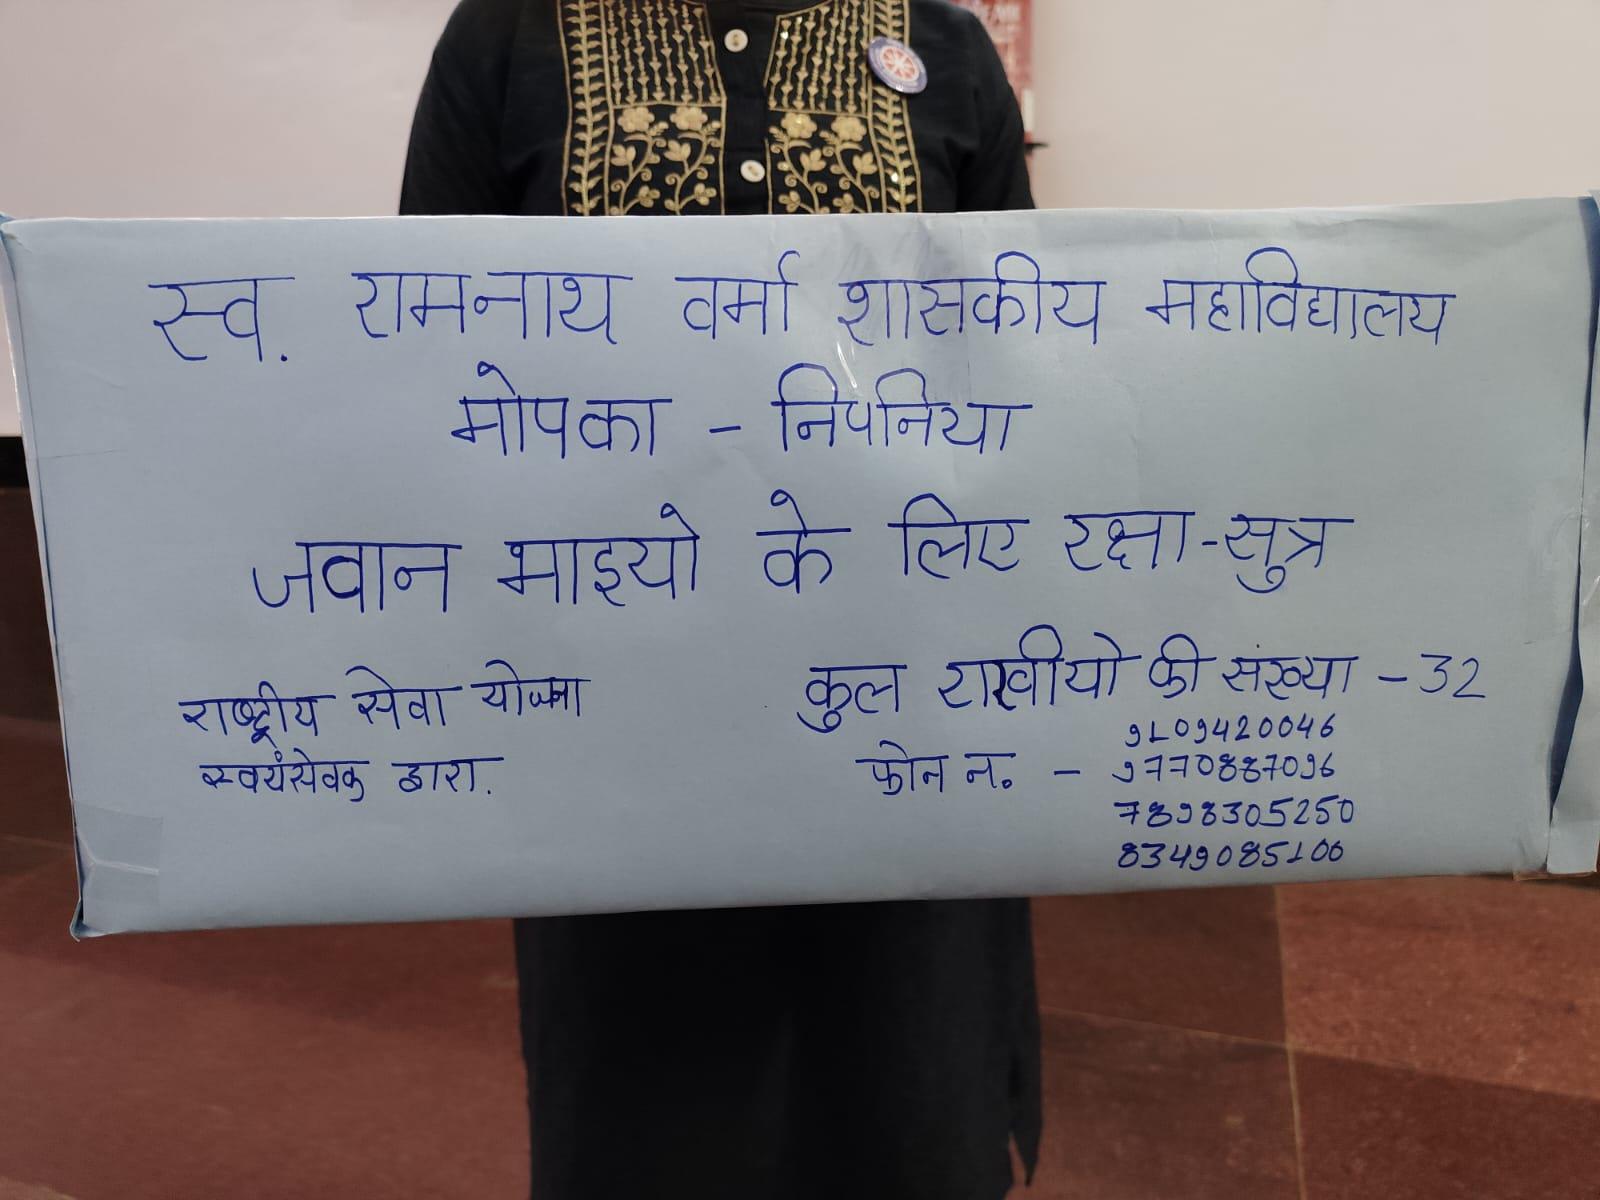 स्व. रामनाथ वर्मा शासकीय महाविद्यालय
मोपका - निपनिया
जवान भाइयो के लिए रक्षा-सुत्र
राष्ट्रीय सेवा योजना
स्वयंसेवक द्वारा.
कुल राखीयो की संख्या - 32
फोन न. - 9109420046
9770887096
7898305250
8349085100